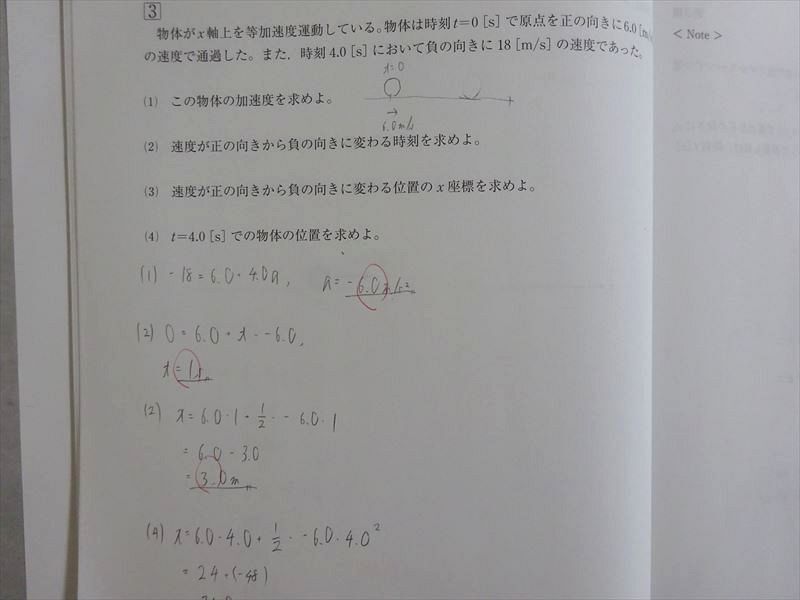 3
物体がx軸上を等加速度運動している。物体は時刻t=0[s]で原点を正の向きに6.0[m/s
の速度で通過した。また,時刻4.0[s]において負の向きに18[m/s]の速度であった。
< Note >
t=0
6.0m/s
(1) この物体の加速度を求めよ。
(2) 速度が正の向きから負の向きに変わる時刻を求めよ。
(3) 速度が正の向きから負の向きに変わる位置のx座標を求めよ。
(4) t=4.0[s]での物体の位置を求めよ。
(1) -18=6.0+4.0a, a=-6.0m/s²
(2) 0=6.0+t・-6.0,
t=1s
(2) x=6.0・1+1/2・-6.0・1
=6.0-3.0
=3.0m
(4) x=6.0・4.0+1/2・-6.0・4.0²
=24+(-48)